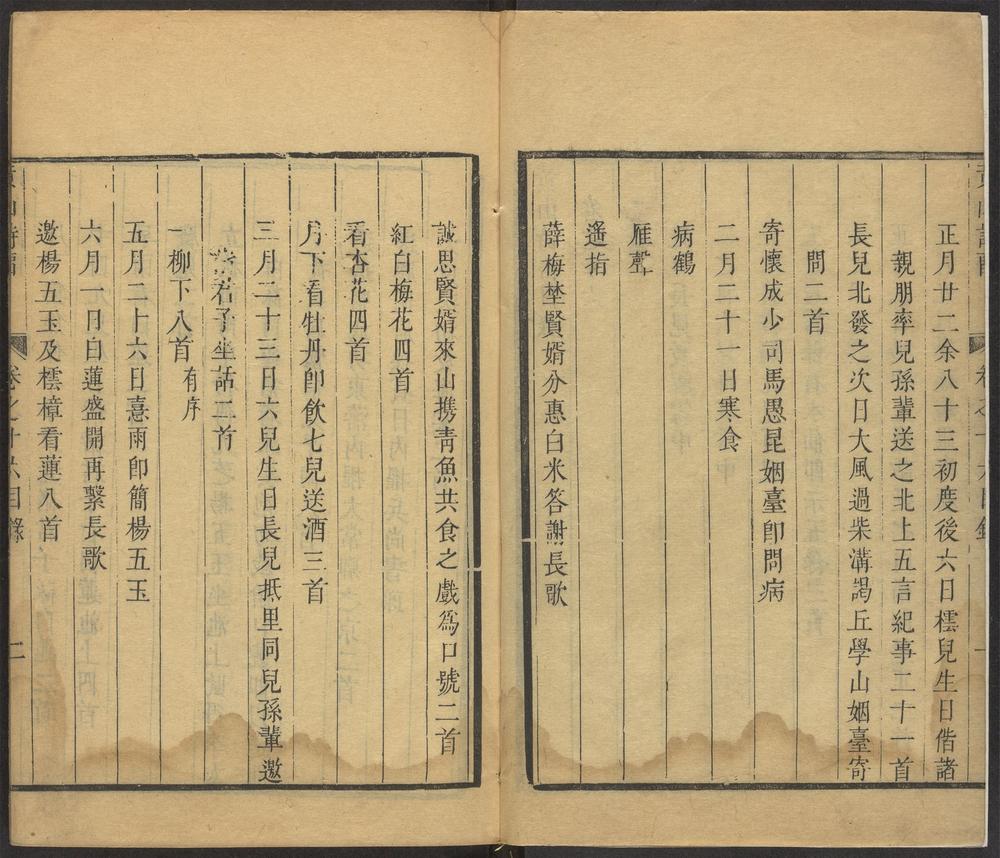 正月廿二余八十三初度後六日橒兒生日偕諸
親朋率兒孫輩送之北上五言紀事二十一首
長兒北發之次日大風過柴溝謁丘學山姻臺寄
問二首
寄懷成少司馬愚昆姻臺卽問病
二月二十一日寒食
病鶴
雁聲
遙指
薛梅埜賢婿分惠白米答謝長歌
誠思賢婿來山攜青魚共食之戲爲口號二首
紅白梅花四首
看杏花四首
月下看牡丹卽飲七兒送酒三首
三月二十三日六兒生日長兒抵里同兒孫輩邀
君子坐話二首
柳下八首有序
五月二十六日憙雨卽簡楊五玉
六月一日白蓮盛開再繫長歌
邀楊五玉及橒樟看蓮八首
卷之十六目錄
二